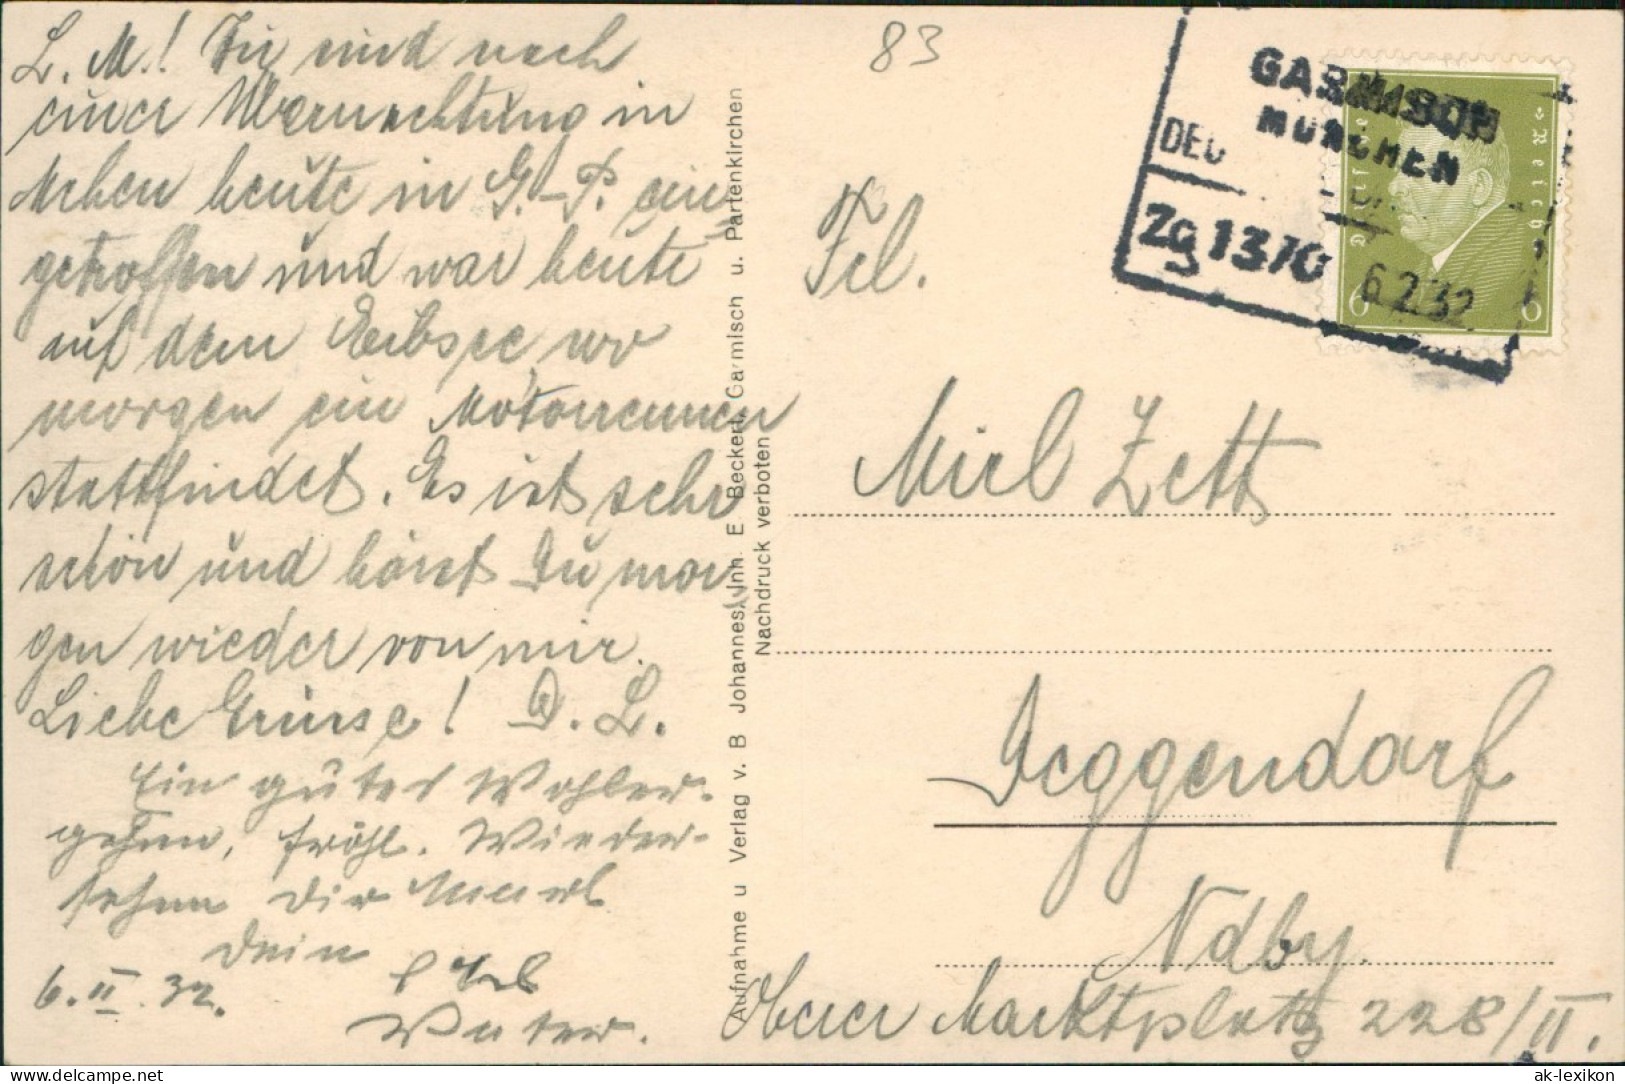 L. M.! Wir sind nach
einer Übernachtung in
München heute in G.-P. ein
getroffen und war heute
auf dem Eibsee, wo
morgen ein Motorrennen
stattfindet. Es ist sehr
schön und hörst Du mor
gen wieder von mir.
Liebe Grüsse! D. L.
Ein gutes Wohler-
gehen, fröhl. Wieder-
sehen Dir
Dein
Vater.
6.II.32.
Aufnahme u Verlag v. B Johannes, Inh. E Beckert, Garmisch u. Partenkirchen
Nachdruck verboten
83
GARMISCH
MÜNCHEN
DEU
Zg 1370
6 2 32
Deutsches Reich
6 6
Frl.
Mirl Zett
Deggendorf
Ndby.
Oberer Marktplatz 228/II.
www.ansichtskarten-lexikon.de
ak-lexikon